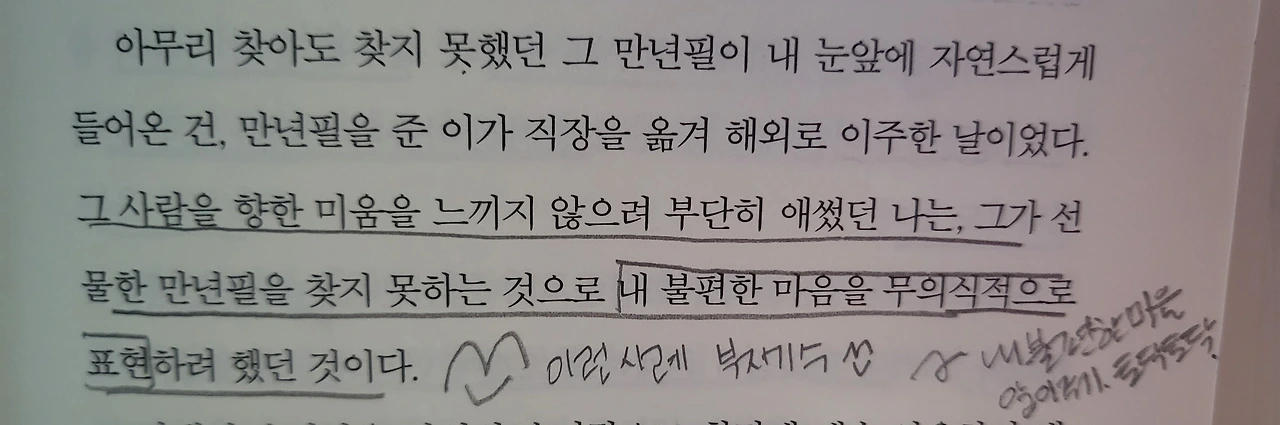 아무리 찾아도 찾지 못했던 그 만년필이 내 눈앞에 자연스럽게
들어온 건, 만년필을 준 이가 직장을 옮겨 해외로 이주한 날이었다.
그 사람을 향한 미움을 느끼지 않으려 부단히 애썼던 나는, 그가 선
물한 만년필을 찾지 못하는 것으로 내 불편한 마음을 무의식적으로
표현하려 했던 것이다.
이런 사례
내 불편한 마음
토닥토닥